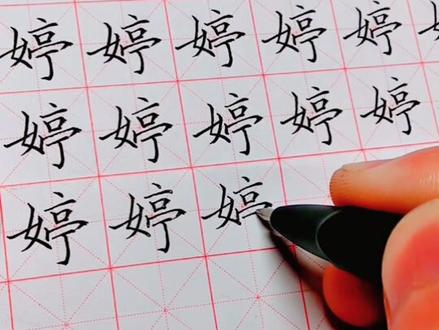 婷婷婷婷婷
婷婷婷婷婷
婷婷婷